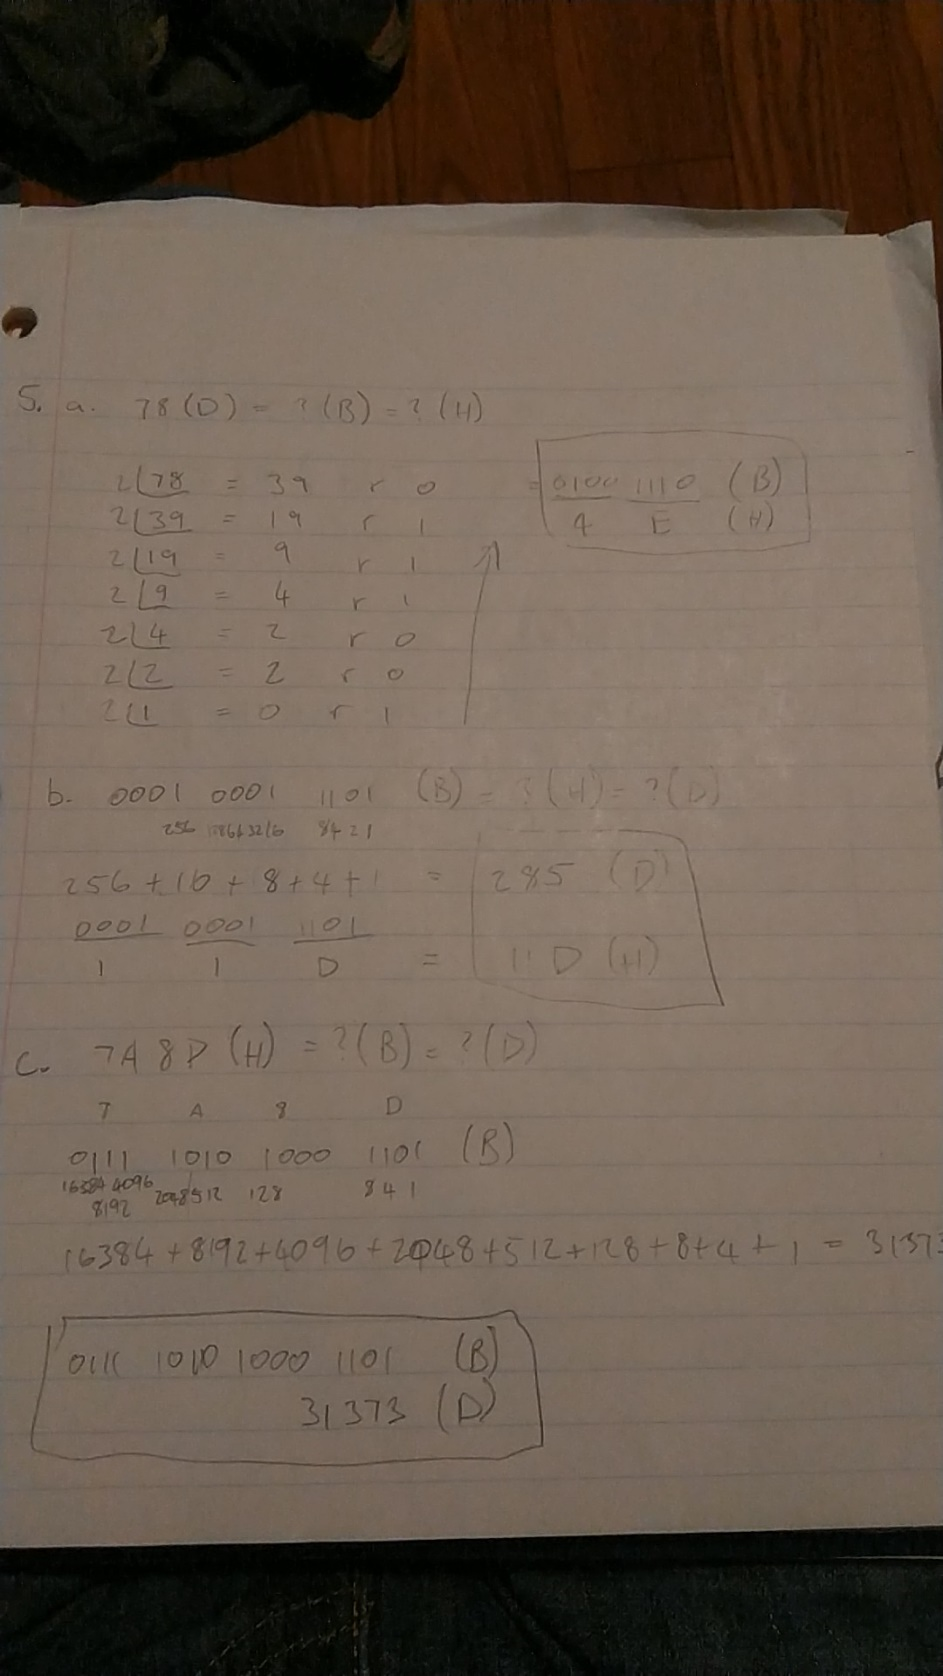 5. a. 78 (D) = ? (B) = ? (H)
2 78 = 39 r 0
2 39 = 19 r 1
2 19 = 9 r 1
2 9 = 4 r 1
2 4 = 2 r 0
2 2 = 2 r 0
2 1 = 0 r 1
= 0100 1110 (B)
4 E (H)
b. 0001 0001 1101 (B) = ? (H) = ? (D)
256 128643216 8421
256 + 16 + 8 + 4 + 1 = 285 (D)
0001 0001 1101
1 1 D = 11D (H)
c. 7A 8D (H) = ? (B) = ? (D)
7 A 8 D
0111 1010 1000 1101 (B)
16384 4096 2048 512 128 8 4 1
8192
16384 + 8192 + 4096 + 2048 + 512 + 128 + 8 + 4 + 1 = 31373
0111 1010 1000 1101 (B)
31373 (D)